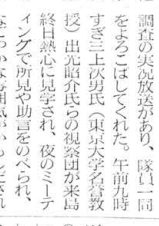 調査の実況放送があり、隊員一同
をよろこばしてくれた。午前九時
すぎ三上次男氏（東京大学名誉教
授）出光昭介氏らの視察団が来島
終日熱心に見学され、夜のミーテ
ィングで所見や助言をのべられ、